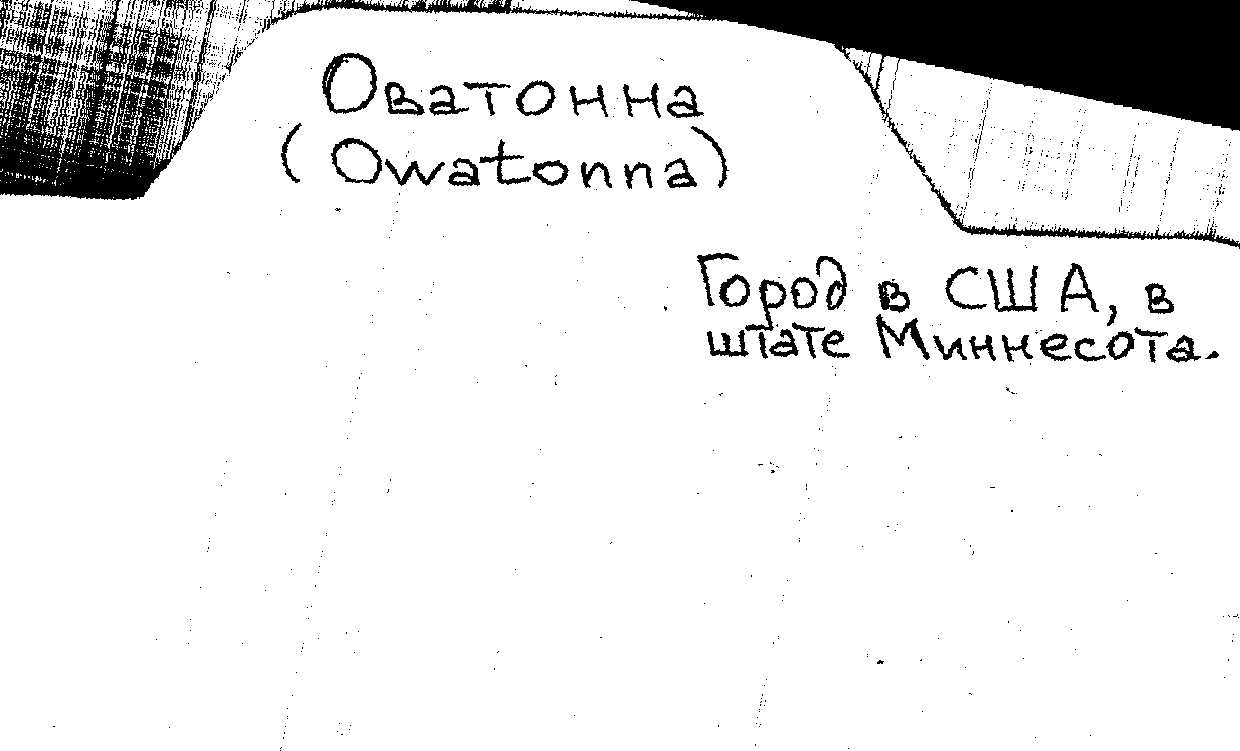 Оватонна
(Owatonna)
Город в США, в
штате Миннесота.